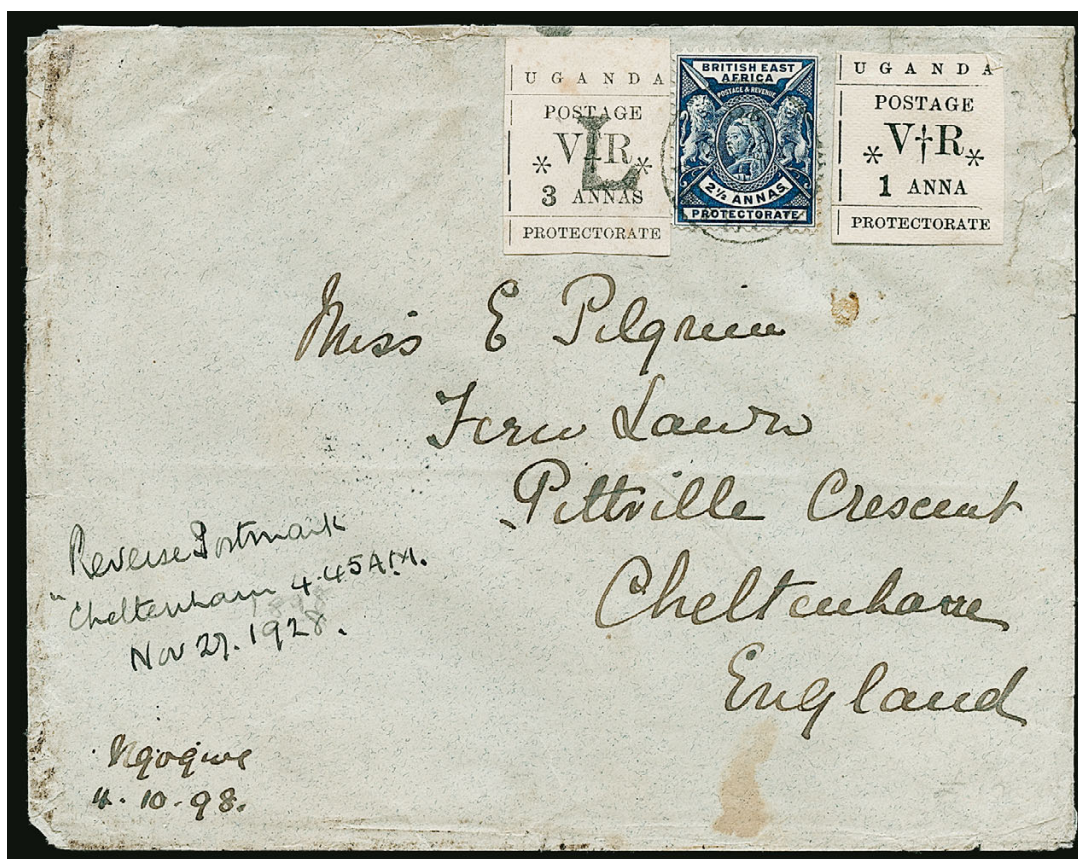 UGANDA
POSTAGE
V†R
L
3 ANNAS
PROTECTORATE
BRITISH EAST
AFRICA
POSTAGE & REVENUE
2½ ANNAS
PROTECTORATE
UGANDA
POSTAGE
V†R
1 ANNA
PROTECTORATE
Miss E Pilgrim
Fern Lawn
Pittville Crescent
Cheltenham
England
Reverse Postmark
"Cheltenham 4.45 A.M.
Nov 27. 1928.
Ngogwe
4.10.98.